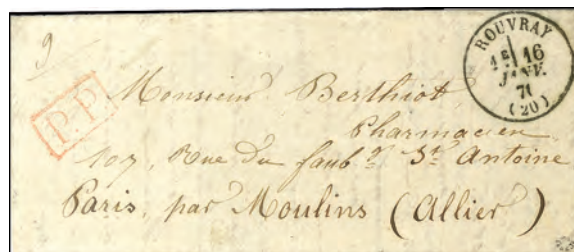 9
ROUVRAY
1E 16
JANV.
71
(20)
P.P.
Monsieur Berthiot
Pharmacien
107, Rue du faubg St Antoine
Paris, par Moulins (Allier)